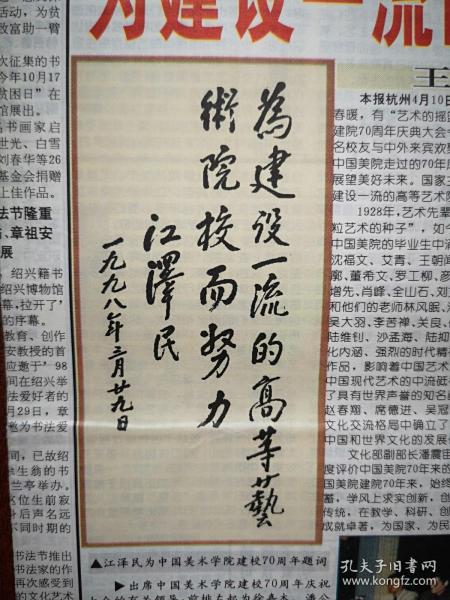 为建设一流
王
活动，为贫
致富助一臂
次征集的书
今年10月17
贫困日”在
馆展出。
名书画家启
世光、白雪
刘春华等26
基金会捐赠
上佳作品。
法节隆重
章祖安
展
绍兴籍书
绍兴博物馆
幕，拉开了’
的序幕。
教育、创作
安教授的首
应邀于’98
间在绍兴举
法爱好者的
月29日，章
毫为书法爱
间，已故绍
生翁的书
兰亭举办。
这位生前寂
身后声名远
不同时期的
书法节推出
书法家的作
再次感受到
的文化艺术
為建设一流的高等藝
術院校而努力
江澤民
一九九八年三月廿九日
▲江泽民为中国美术学院建校70周年题词
▶出席中国美术学院建校70周年庆祝
本报杭州4月10日
春暖，有“艺术的摇
建院70周年庆典大会
名校友与中外来宾欢
中国美院走过的70年
展望美好未来。国家
建设一流的高等艺术院
1928年，艺术先辈
粒艺术的种子”，如今
中国美院的毕业生中涌
沈福文、艾青、王朝闻
廓、董希文、罗工柳、彦
增先、肖峰、全山石、刘
和他们的老师林风眠、
吴大羽、李苦禅、关良、
陆维钊、沙孟海、陆抑
化内涵、强烈的时代精
作品，影响着中国艺术
中国现代艺术的中流砥
了具有世界声誉的知名
赵春翔、席德进、吴冠
文化交流格局中确立了
中国和世界文化的发展
文化部副部长潘震宙
度评价中国美院70年来的
国美院建院70年来，始终
蓄，学风上求实创新，创
传统，在教学、科研、创
成就卓著，为国家、为民
孔夫子旧书网